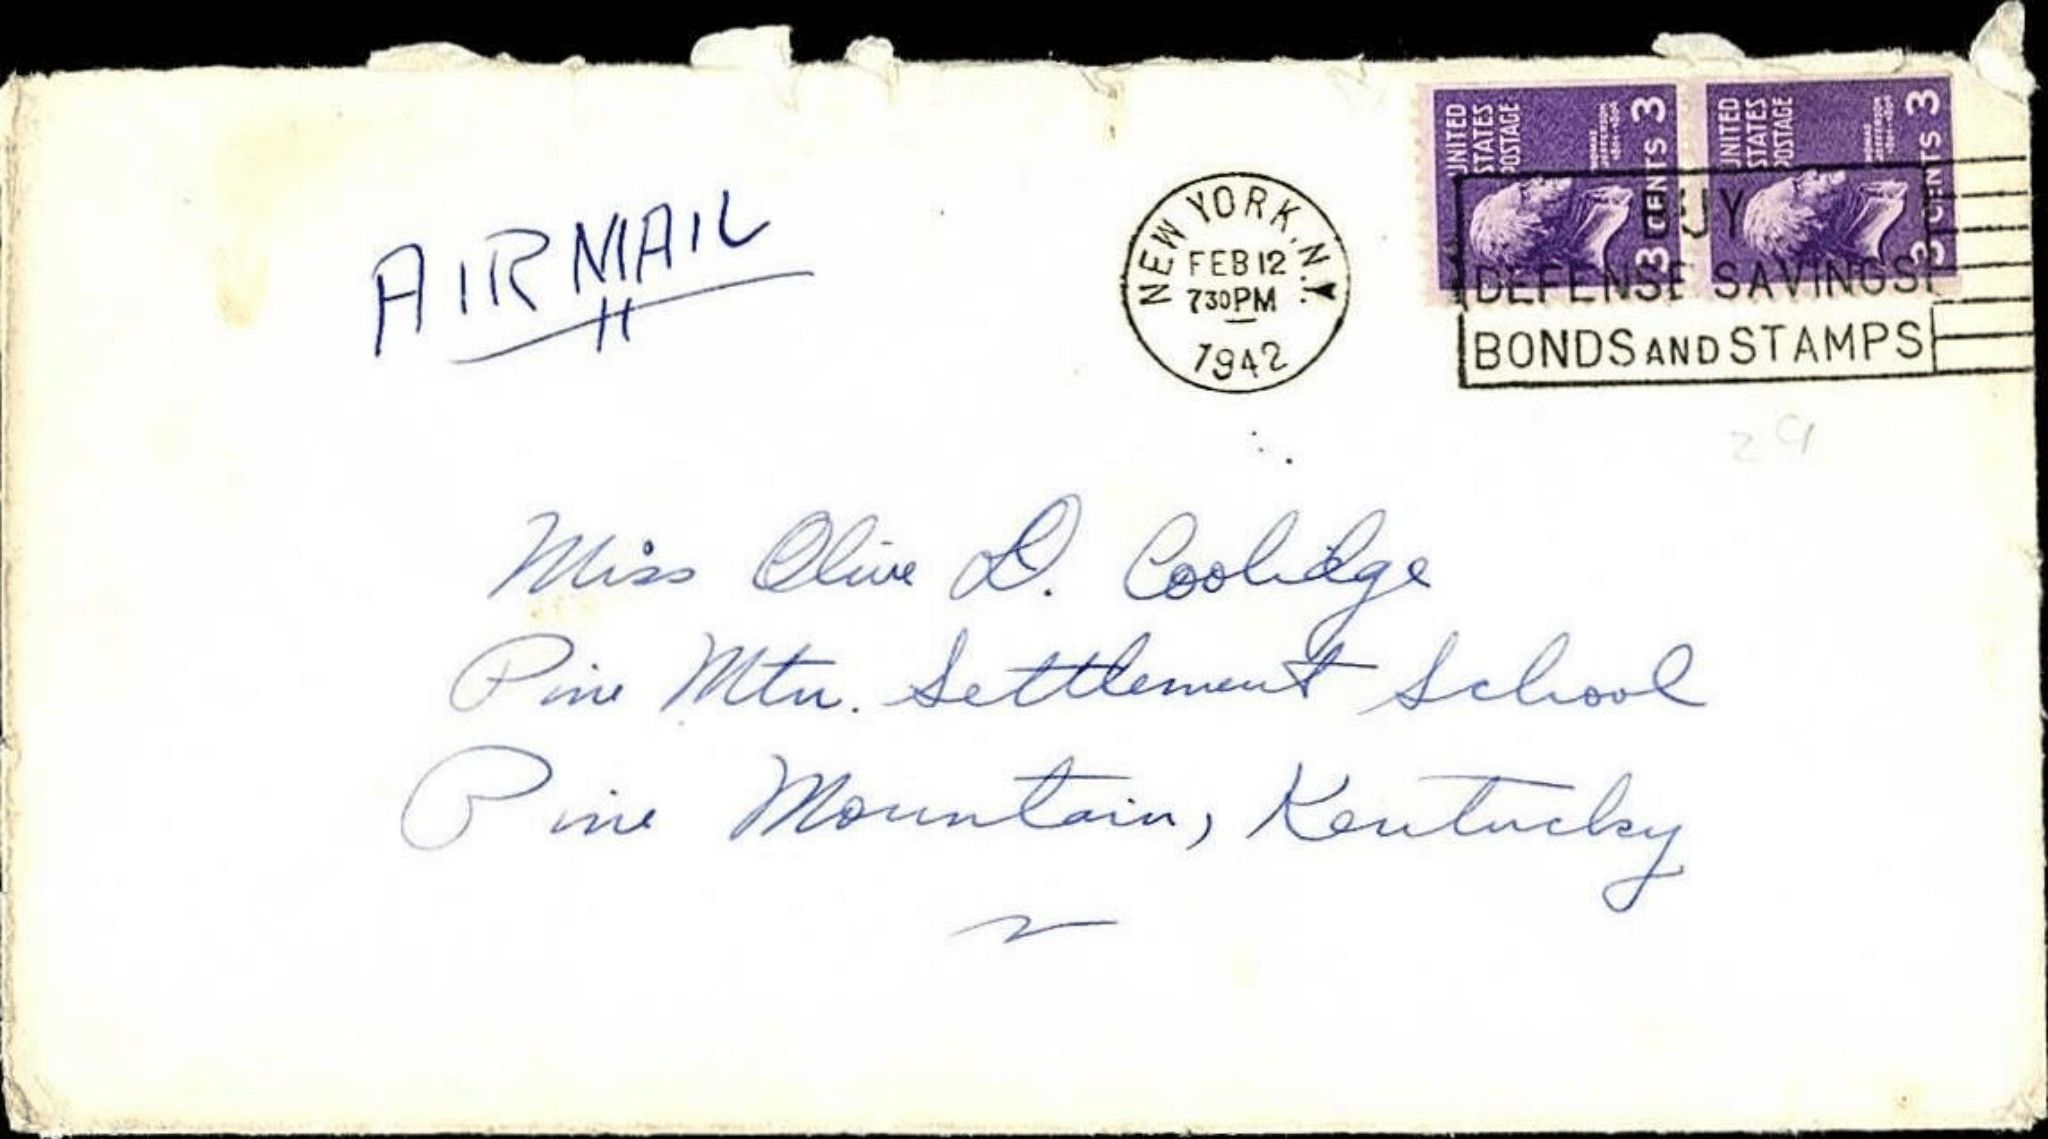 UNITED STATES POSTAGE
THOMAS JEFFERSON
1801-1809
3 CENTS 3
UNITED STATES POSTAGE
THOMAS JEFFERSON
1801-1809
3 CENTS 3
AIRMAIL
NEW YORK, N.Y.
FEB 12
730 PM
1942
BUY
DEFENSE SAVINGS
BONDS AND STAMPS
29
Miss Olive D. Coolidge
Pine Mtn. Settlement School
Pine Mountain, Kentucky